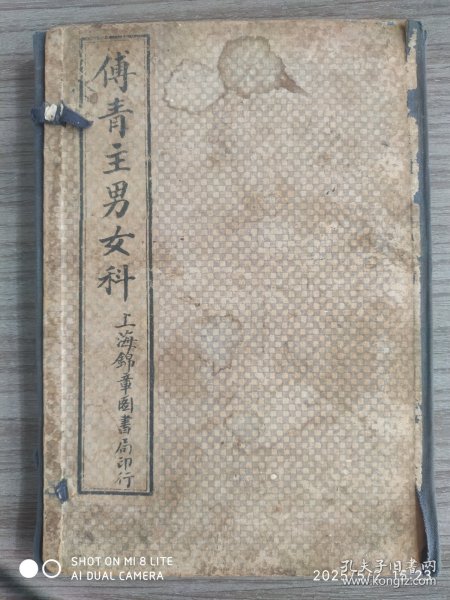 傅青主男女科
上海錦章圖書局印行
SHOT ON MI 8 LITE
AI DUAL CAMERA
孔夫子旧书网
www.kongfz.com